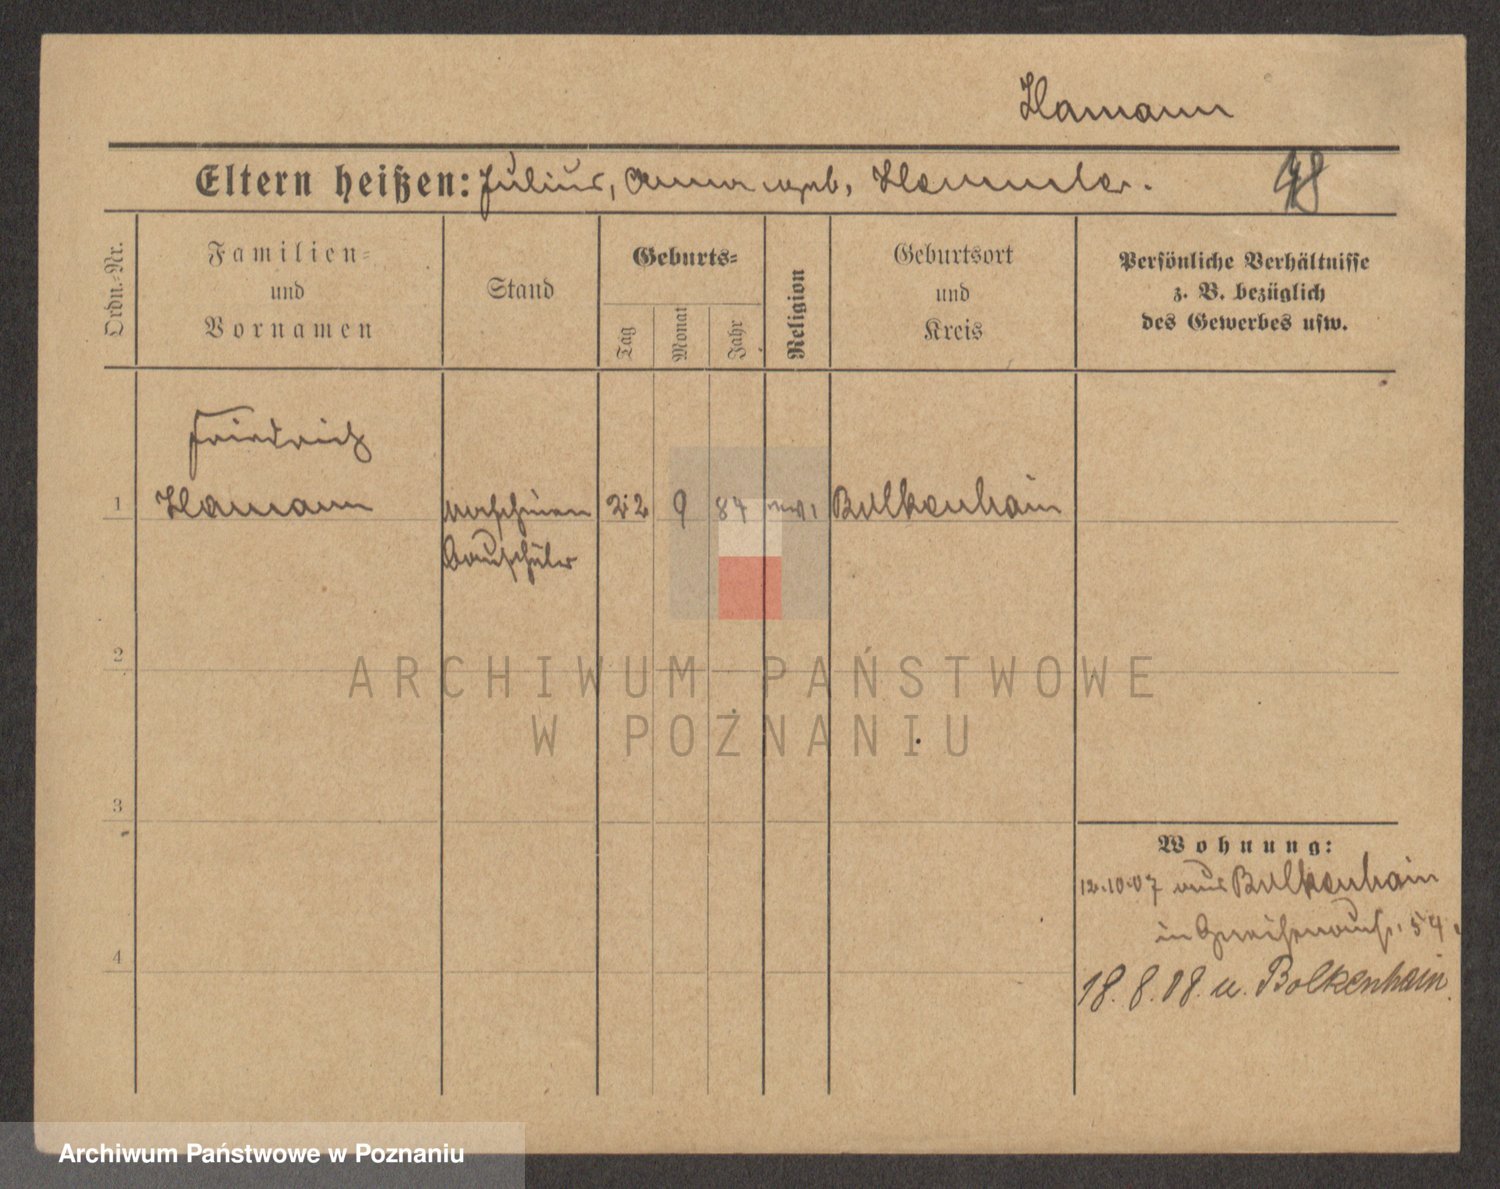 Hamann
Eltern heißen: Julius, Anna geb. Hemmler. 48
Ordn.-Nr.
Familien-
und
Vornamen
Stand
Geburts-
Tag
Monat
Jahr
Religion
Geburtsort
und
Kreis
Persönliche Verhältnisse
z. B. bezüglich
des Gewerbes usw.
Friedrich
1 Hamann Maschinen 22 9 84 ev. Bolkenhain
bauschüler
2
ARCHIWUM PAŃSTWOWE
W POZNANIU
3
Wohnung:
12.10.07 aus Bolkenhain
in 54
4
18.8.08. n. Bolkenhain.
Archiwum Państwowe w Poznaniu